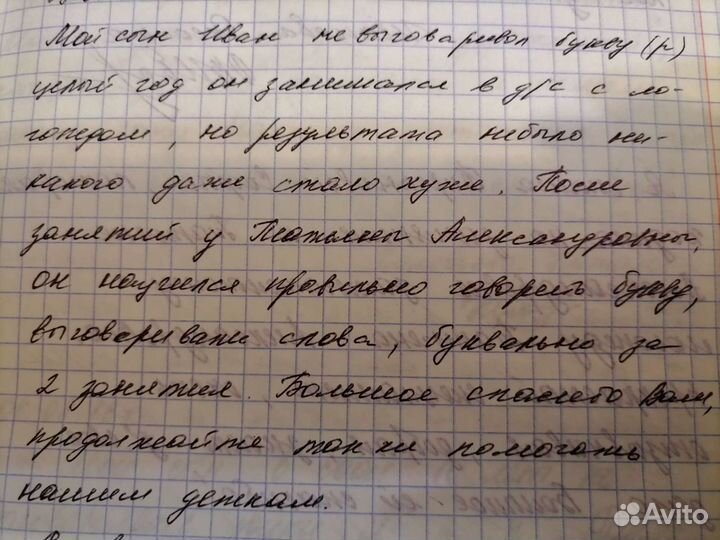 Мой сын Иван не выговаривал букву (р)
целый год он занимался в д/с с ло-
гопедом, но результата небыло ни-
какого даже стало хуже. После
занятий у Татьяны Александровны,
он научился правильно говорить букву,
выговаривать слова, буквально за
2 занятия. Большое спасибо Вам,
продолжайте так же помогать
нашим деткам.
Avito